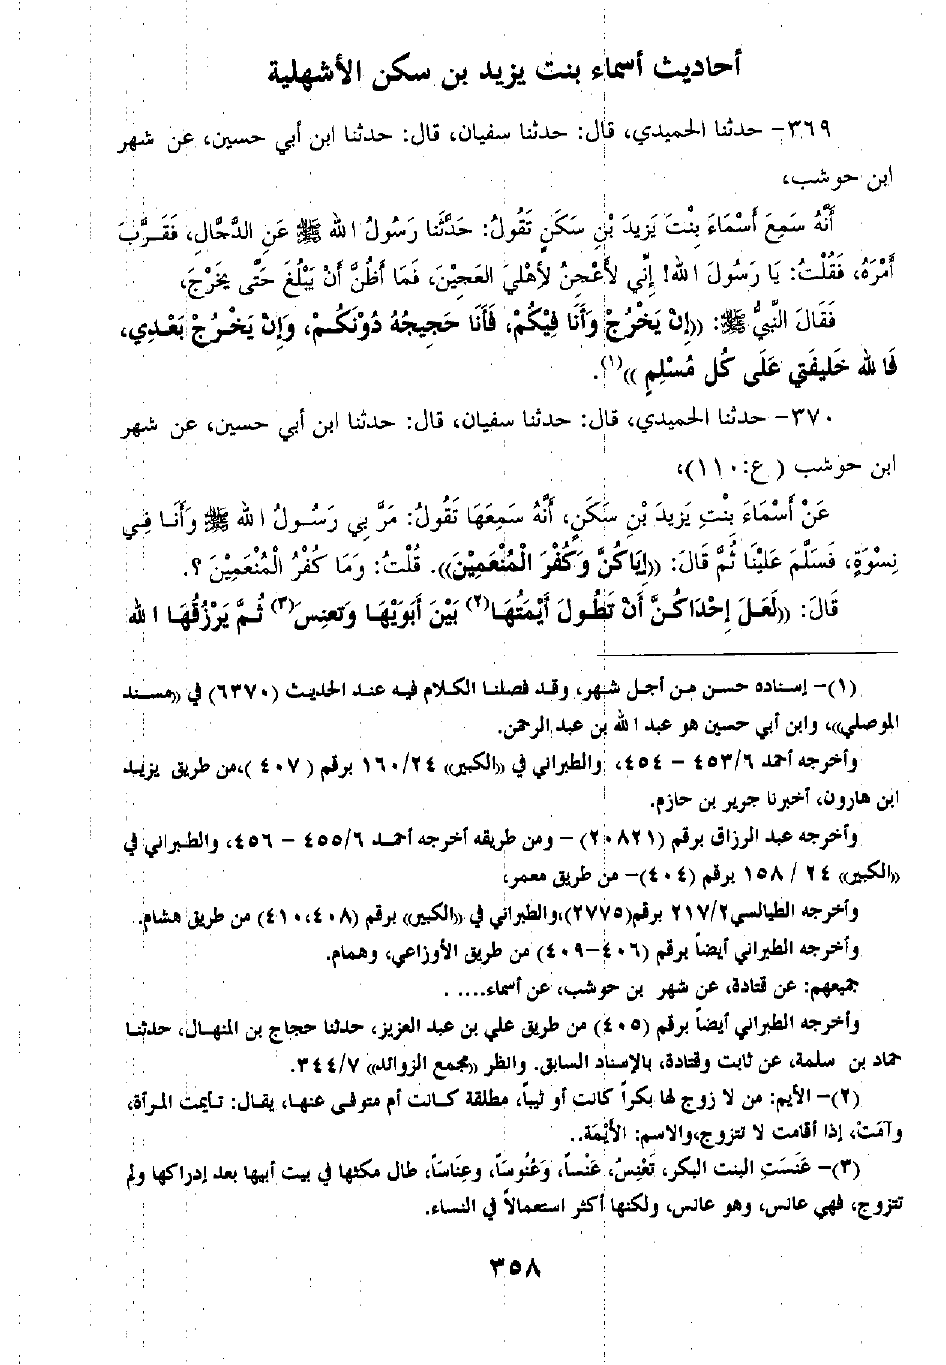 أحاديث أسماء بنت يزيد بن سكن الأشهلية
٣٦٩- حدثنا الحميدي، قال: حدثنا سفيان، قال: حدثنا ابن أبي حسين، عن شهر
ابن حوشب،
أَنَّهُ سَمِعَ أَسْمَاءَ بِنْتَ يَزِيدَ بْنِ سَكَنٍ تَقُولُ: حَدَّثَنَا رَسُولُ الله ﷺ عَنِ الدَّجَّالِ، فَقَرَّبَ
أَمْرَهُ، فَقُلْتُ: يَا رَسُولَ الله! إِنِّي لأَعْجِنُ لأَهْلِيَ العَجِيْنَ، فَمَا أَظُنُّ أَنْ يَبْلُغَ حَتَّى يَخْرُجَ،
فَقَالَ النَّبِيُّ ﷺ: ((إِنْ يَخْرُجْ وَأَنَا فِيكُمْ، فَأَنَا حَجِيجُهُ دُوْنَكُمْ، وَإِنْ يَخْرُجْ بَعْدِي،
فَالله خَلِيفَتِي عَلَى كُلِّ مُسْلِمٍ ))(١).
٣٧٠- حدثنا الحميدي، قال: حدثنا سفيان، قال: حدثنا ابن أبي حسين، عن شهر
ابن حوشب ( ع:١١٠)،
عَنْ أَسْمَاءَ بِنْتِ يَزِيدَ بْنِ سَكَنٍ، أَنَّهُ سَمِعَهَا تَقُولُ: مَرَّ بِي رَسُولُ الله ﷺ وَأَنَا فِي
نِسْوَةٍ، فَسَلَّمَ عَلَيْنَا ثُمَّ قَالَ: ((إِيَاكُنَّ وَكُفْرَ الْمُنْعَمِيْنَ)). قُلْتُ: وَمَا كُفْرُ الْمُنْعَمِيْنَ ؟.
قَالَ: ((لَعَلَ إِحْدَاكُنَّ أَنْ تَطُولَ أَيْمَتُهَا(٢) بَيْنَ أَبَوَيْهَا وَتَعنِسَ(٣) ثُمَّ يَرْزُقُهَا الله
(١)- إسناده حسن من أجل شهر، وقد فصلنا الكلام فيه عند الحديث (٦٣٧٠) في ((مسند
الموصلي))، وابن أبي حسين هو عبد الله بن عبد الرحمن.
وأخرجه أحمد ٤٥٣/٦ – ٤٥٤، والطبراني في ((الكبير)) ١٦٠/٢٤ برقم ( ٤٠٧ )،من طريق يزيد
ابن هارون، أخبرنا جرير بن حازم.
وأخرجه عبد الرزاق برقم (٢٠٨٢١) – ومن طريقه أخرجه أحمد ٤٥٥/٦ – ٤٥٦، والطبراني في
((الكبير)) ٢٤ / ١٥٨ برقم (٤٠٤)- من طريق معمر،
وأخرجه الطيالسي٢١٧/٢ برقم(٢٧٧٥)،والطبراني في ((الكبير)) برقم (٤١٠،٤٠٨) من طريق هشام.
وأخرجه الطبراني أيضاً برقم (٤٠٦-٤٠٩) من طريق الأوزاعي، وهمام.
جميعهم: عن قتادة، عن شهر بن حوشب، عن أسماء.....
وأخرجه الطبراني أيضاً برقم (٤٠٥) من طريق علي بن عبد العزيز، حدثنا حجاج بن المنهال، حدثنا
حماد بن سلمة، عن ثابت وقتادة، بالإسناد السابق. والظر ((مجمع الزوائد)) ٣٤٤/٧.
(٢)- الأيم: من لا زوج لها بكراً كانت أو ثيباً، مطلقة كانت أم متوفى عنها، يقال: تأيمت المرأة،
وآمَتْ، إذا أقامت لا تتزوج،والاسم: الأَيْمَة..
(٣)- عَنَسَتِ البنت البكر، تَعْنِسُ، عَنْساً، وَعُنُوسَاً، وعِنَاسَاً، طال مكثها في بيت أبيها بعد إدراكها ولم
تتزوج، فهي عانس، وهو عانس، ولكنها أكثر استعمالاً في النساء.
٣٥٨